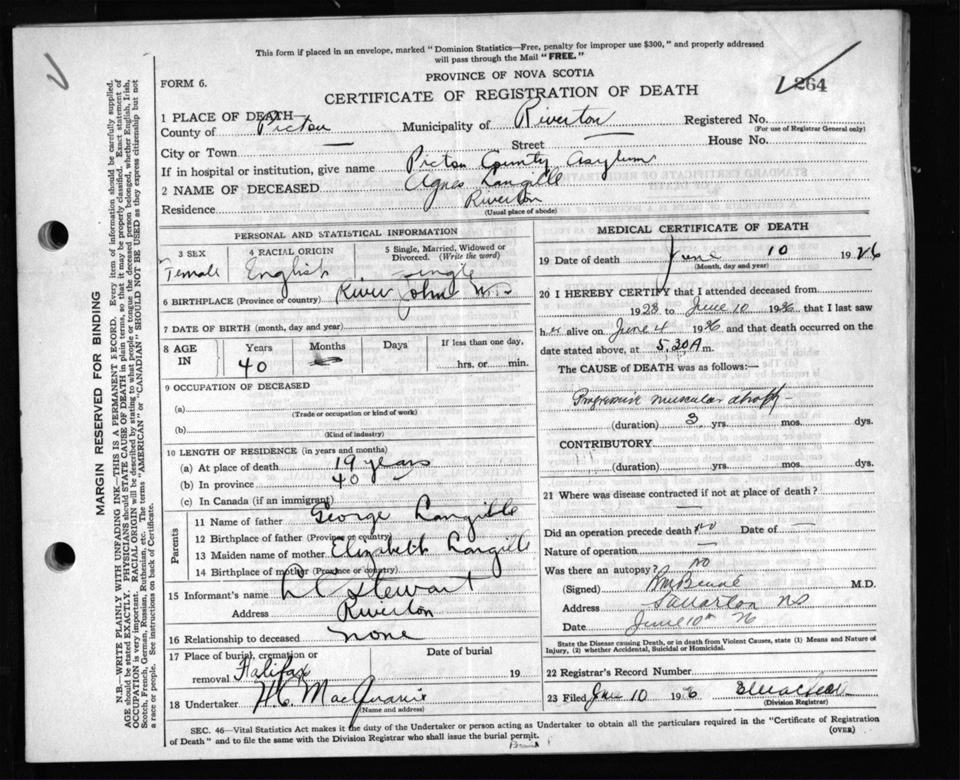 This form if placed in an envelope, marked "Dominion Statistics—Free, penalty for improper use $300," and properly addressed
will pass through the Mail "FREE."
FORM 6.
PROVINCE OF NOVA SCOTIA
264
CERTIFICATE OF REGISTRATION OF DEATH
1 PLACE OF DEATH
County of Pictou Municipality of Riverton Registered No.
(For use of Registrar General only)
City or Town Street House No.
If in hospital or institution, give name Pictou County Asylum
2 NAME OF DECEASED Agnes Langille
Residence Riverton
(Usual place of abode)
PERSONAL AND STATISTICAL INFORMATION
3 SEX 4 RACIAL ORIGIN 5 Single, Married, Widowed or Divorced. (Write the word)
Female English Single
6 BIRTHPLACE (Province or country) River John N.S
7 DATE OF BIRTH (month, day and year)
8 AGE IN Years Months Days If less than one day,
40 hrs. or min.
9 OCCUPATION OF DECEASED
(a)
(Trade or occupation or kind of work)
(b)
(Kind of industry)
10 LENGTH OF RESIDENCE (in years and months)
(a) At place of death 19 years
(b) In province 40
(c) In Canada (if an immigrant)
Parents
11 Name of father George Langille
12 Birthplace of father (Province or country)
13 Maiden name of mother Elizabeth Langille
14 Birthplace of mother (Province or country)
15 Informant's name Stewart
Address Riverton
16 Relationship to deceased none
17 Place of burial, cremation or removal Halifax
Date of burial 19
18 Undertaker H.C.
(Name and address)
MEDICAL CERTIFICATE OF DEATH
19 Date of death June 10 1926
(Month, day and year)
20 I HEREBY CERTIFY that I attended deceased from
1923 to June 10 1926, that I last saw
her alive on June 4 1926 and that death occurred on the
date stated above, at 5.30 A m.
The CAUSE of DEATH was as follows:—
Progressive muscular atrophy
(duration) 3 yrs. mos. dys.
CONTRIBUTORY
(duration) yrs. mos. dys.
21 Where was disease contracted if not at place of death?
Did an operation precede death? No Date of —
Nature of operation
Was there an autopsy? No
(Signed) M.D.
Address NS
Date June 10th 26
State the Disease causing Death, or in death from Violent Causes, state (1) Means and Nature of
Injury, (2) whether Accidental, Suicidal or Homicidal.
22 Registrar's Record Number
23 Filed June 10 1926
(Division Registrar)
SEC. 46—Vital Statistics Act makes it the duty of the Undertaker or person acting as Undertaker to obtain all the particulars required in the "Certificate of Registration
of Death" and to file the same with the Division Registrar who shall issue the burial permit.
(OVER)
MARGIN RESERVED FOR BINDING
N.B.—WRITE PLAINLY WITH UNFADING INK—THIS IS A PERMANENT RECORD. Every item of information should be carefully supplied.
AGE should be stated EXACTLY. PHYSICIANS should STATE CAUSE OF DEATH in plain terms, so that it may be properly classified. Exact statement of
OCCUPATION is very important. RACIAL ORIGIN will be described by stating to what people or tongue the deceased person belonged, whether English, Irish,
Scotch, French, German, Russian, Ruthenian, etc. The terms "AMERICAN" or "CANADIAN" SHOULD NOT BE USED as they express citizenship but not
a race or people. See instructions on back of Certificate.